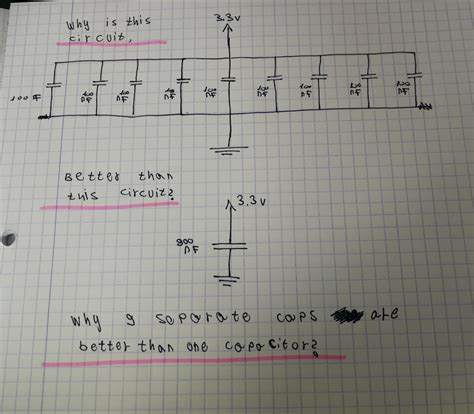 Why is this
circuit,
3.3v
100 nF
100 nF
100 nF
100 nF
100 nF
100 nF
100 nF
100 nF
100 nF
Better than
this circuit?
3.3v
900 nF
Why 9 separate caps are
better than one capacitor?